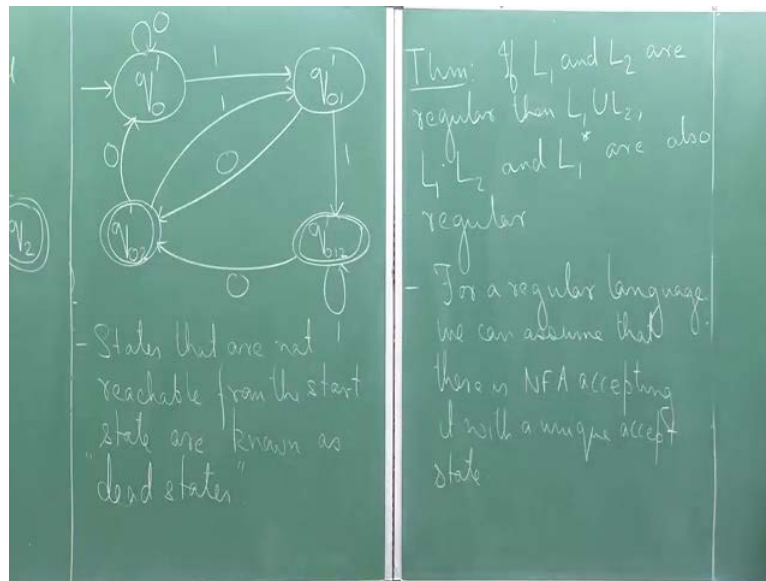 0
1
q'₀
q'₀₁
1
0
0
1
q₂
q'₀₂
q'₀₁₂
0
1
- States that are not
reachable from the start
state are known as
"dead states"
Thm: If L₁ and L₂ are
regular then L₁ ∪ L₂,
L₁·L₂ and L₁* are also
regular
- For a regular language
we can assume that
there is NFA accepting
it with a unique accept
state.